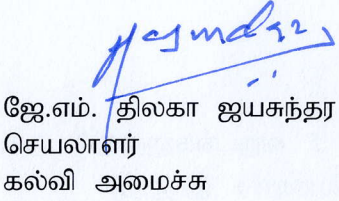 ஜே.எம். திலகா ஜயசுந்தர
செயலாளர்
கல்வி அமைச்சு